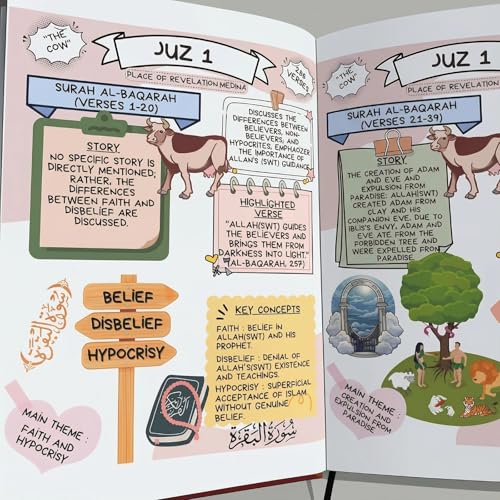 "THE
COW"
JUZ 1
PLACE OF REVELATION:MEDINA
286
VERSES
SURAH AL-BAQARAH
(VERSES 1-20)
STORY
NO SPECIFIC STORY IS
DIRECTLY MENTIONED;
RATHER, THE
DIFFERENCES
BETWEEN FAITH AND
DISBELIEF ARE
DISCUSSED.
DISCUSSES THE
DIFFERENCES BETWEEN
BELIEVERS, NON-
BELIEVERS, AND
HYPOCRITES, EMPHASIZES
THE IMPORTANCE OF
ALLAH'S (SWT) GUIDANCE
HIGHLIGHTED
VERSE
"ALLAH(SWT) GUIDES
THE BELIEVERS AND
BRINGS THEM FROM
DARKNESS INTO LIGHT."
(AL-BAQARAH, 257)
سورة البقرة
BELIEF
DISBELIEF
HYPOCRISY
KEY CONCEPTS
FAITH : BELIEF IN
ALLAH(SWT) AND HIS
PROPHET.
DISBELIEF : DENIAL OF
ALLAH'S(SWT) EXISTENCE
AND TEACHINGS.
HYPOCRISY : SUPERFICIAL
ACCEPTANCE OF ISLAM
WITHOUT GENUINE
BELIEF.
سورة البقرة
MAIN THEME :
FAITH AND
HYPOCRISY
"THE
COW"
JUZ 1
PLACE OF REVELATION
SURAH AL-BAQARAH
(VERSES 21-39)
STORY
THE CREATION OF ADAM
AND EVE AND
EXPULSION FROM
PARADISE: ALLAH(SWT)
CREATED ADAM FROM
CLAY AND HIS
COMPANION EVE. DUE TO
IBLIS'S ENVY, ADAM AND
EVE ATE FROM THE
FORBIDDEN TREE AND
WERE EXPELLED FROM
PARADISE.
MAIN THEME :
CREATION AND
EXPULSION FROM
PARADISE